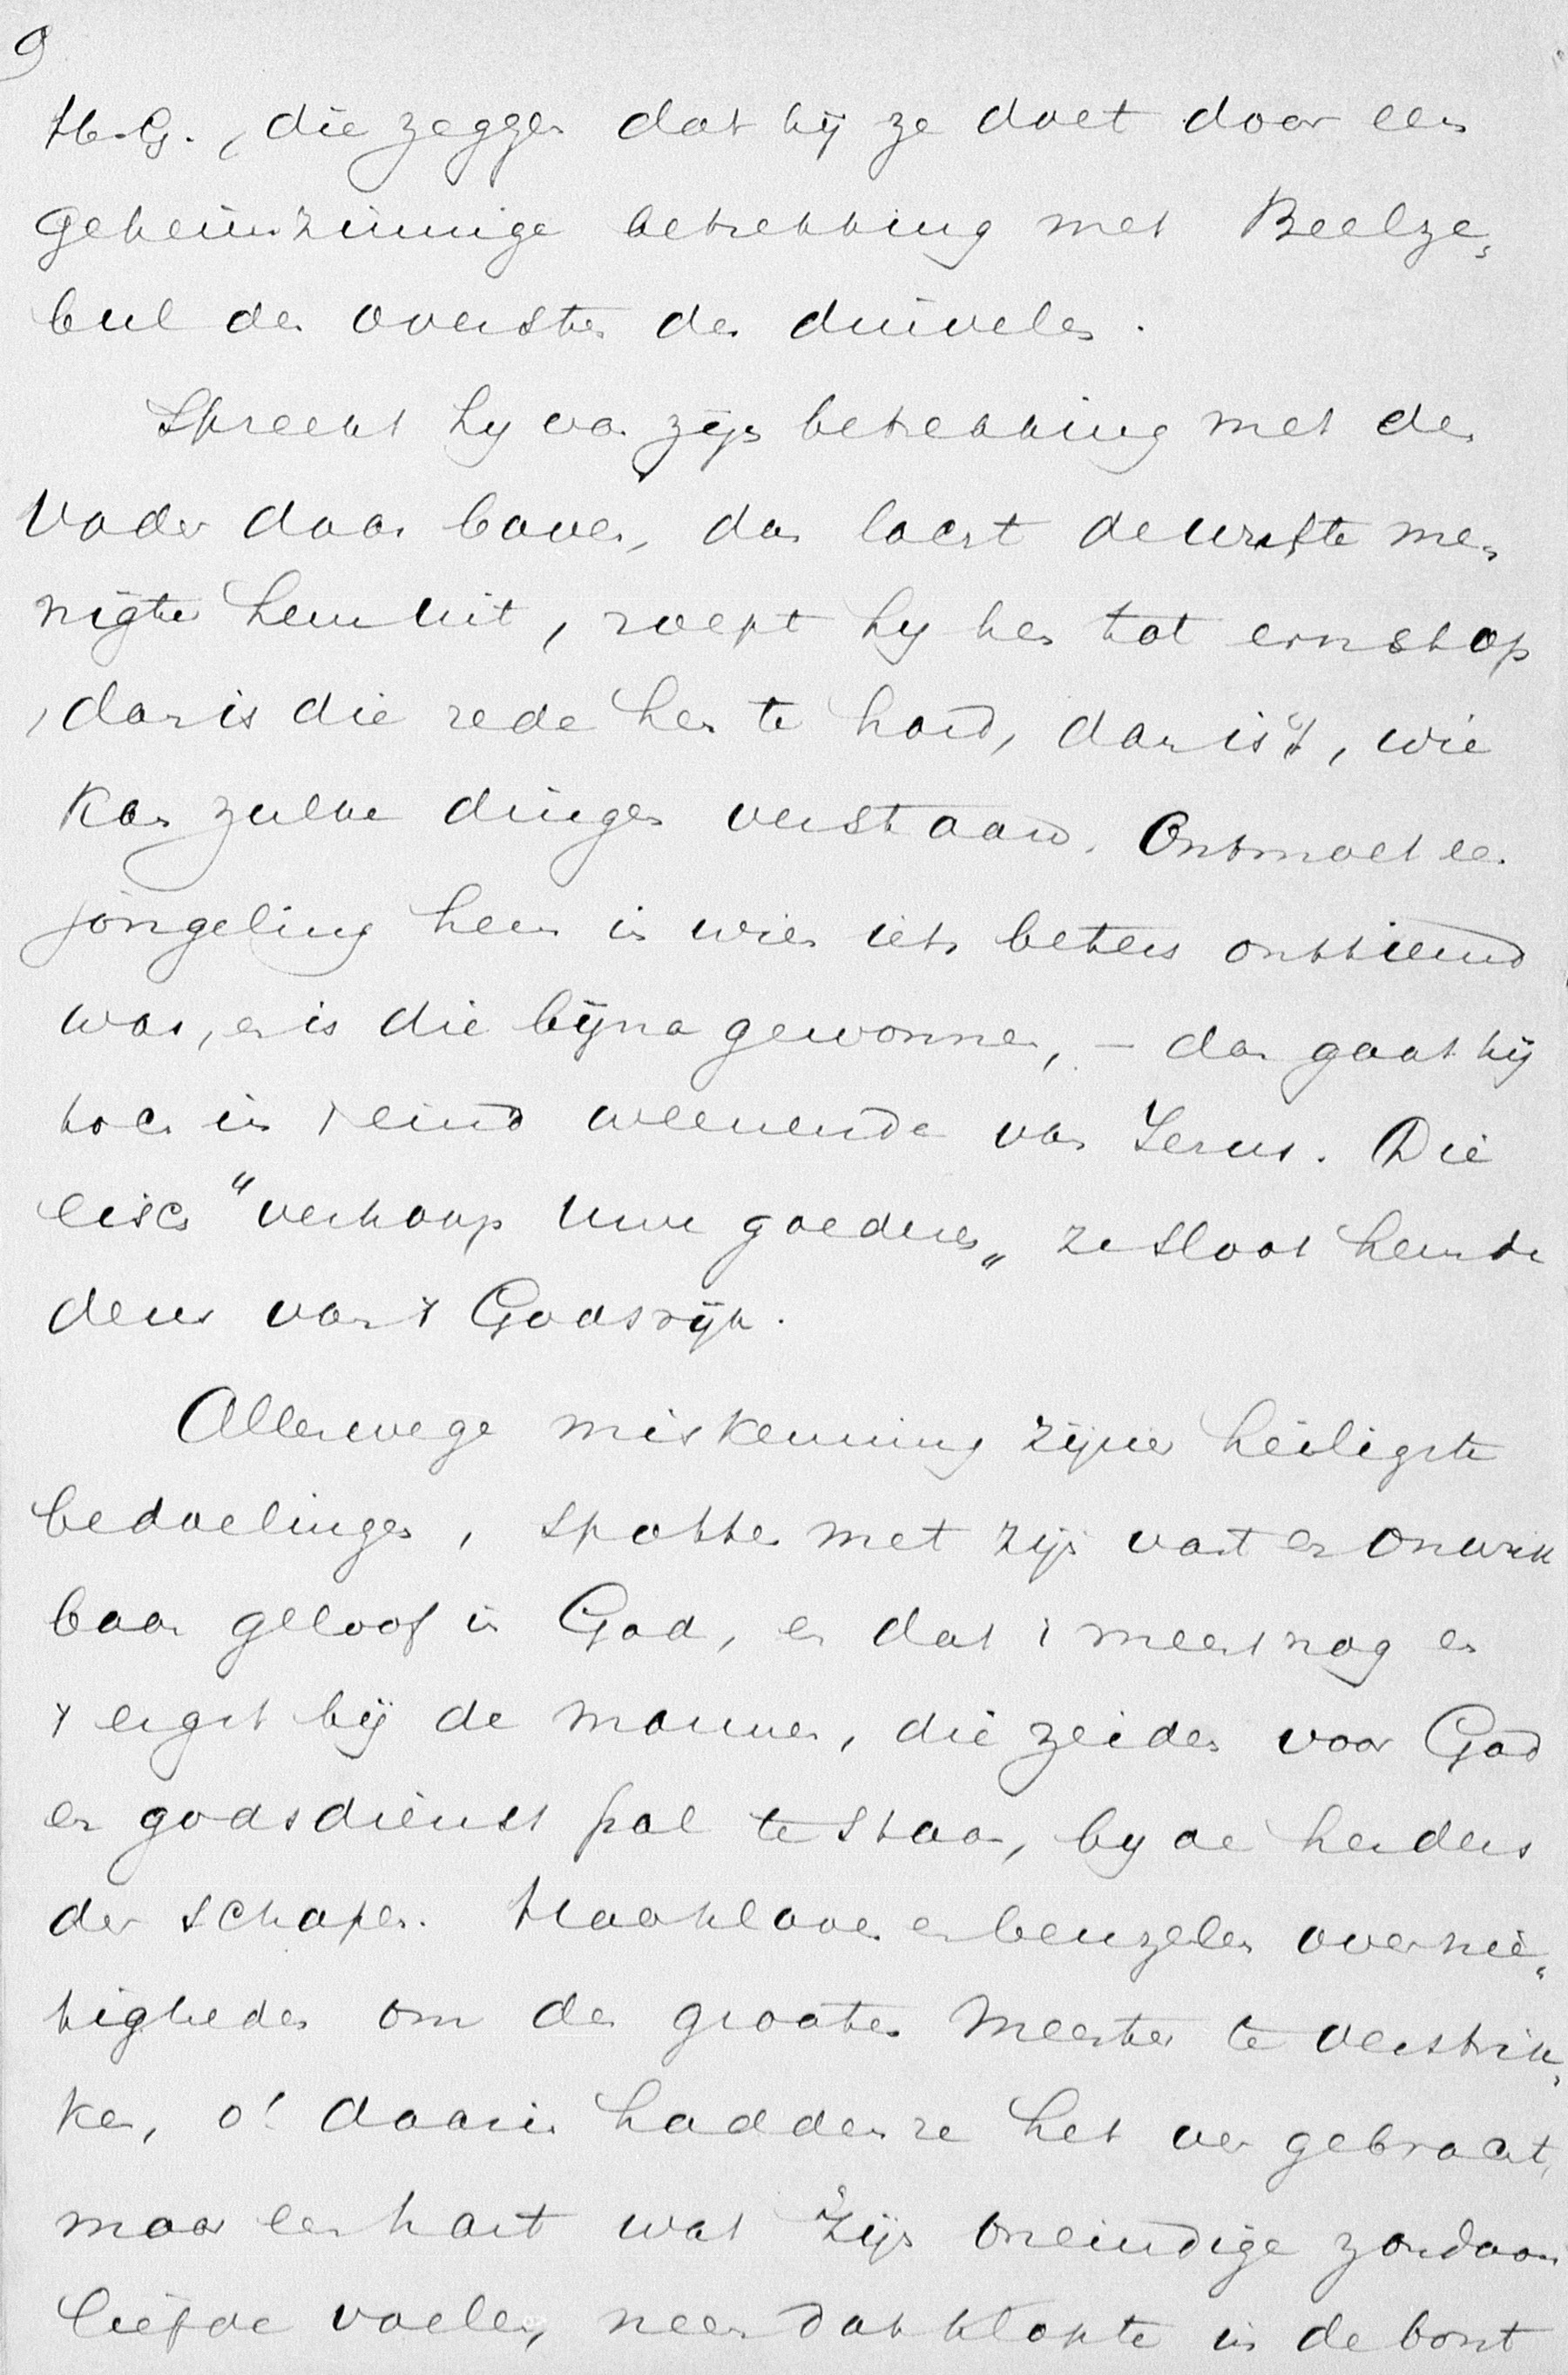 9
H.G., die zeggen dat hij ze doet door een
geheimzinnige betrekking met Beelze„
bul den oversten der duivelen.
Spreekt hy van zijn betrekking met den
Vader daar boven, dan lacht de wufte me„
nigte hem uit, roept hy hen tot ernst op
, dan is die rede hen te hard, dan is 't, wie
kan zulke dingen verstaan. Ontmoet een
jongeling hem in wien iets beters ontkiemd
was, en is die bijna gewonnen, – dan gaat hij
toch in 't eind weenende van Jezus. Die
eisch “verkoop uwe goederen„ ze sloot hem de
deur van 't Godsrijk.
Allerwege miskenning zijner heiligste
bedoelingen, spotten met zijn vast en onwrik
baar geloof in God, en dat 't meest nog en
't ergst bij de mannen, die zeiden voor God
en godsdienst pal te staan, by de herders
der schapen. Haarkloven en beuzelen over nie„
tigheden om den grooten Meester te verstrik„
ken, o! daarin hadden ze het ver gebracht,
maar een hart wat zijn oneindige zondaars
liefde voelen, neen dat klopte in de borst